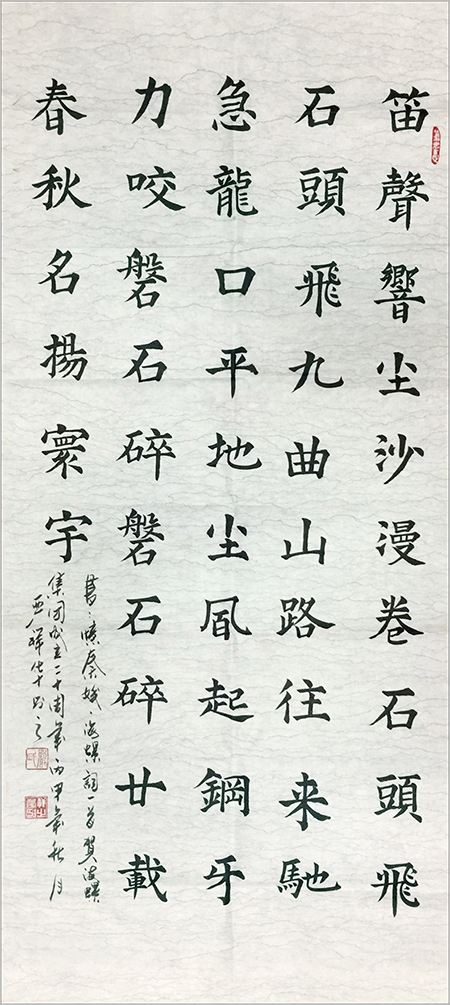 笛聲響尘沙漫卷石頭飛
石頭飛九曲山路往来馳
急龍口平地尘凬起鋼牙
力咬磐石碎磐石碎廿載
春秋名揚寰宇
憶秦娥·海螺詞一首賀海螺
集团成立二十周年丙申年秋月